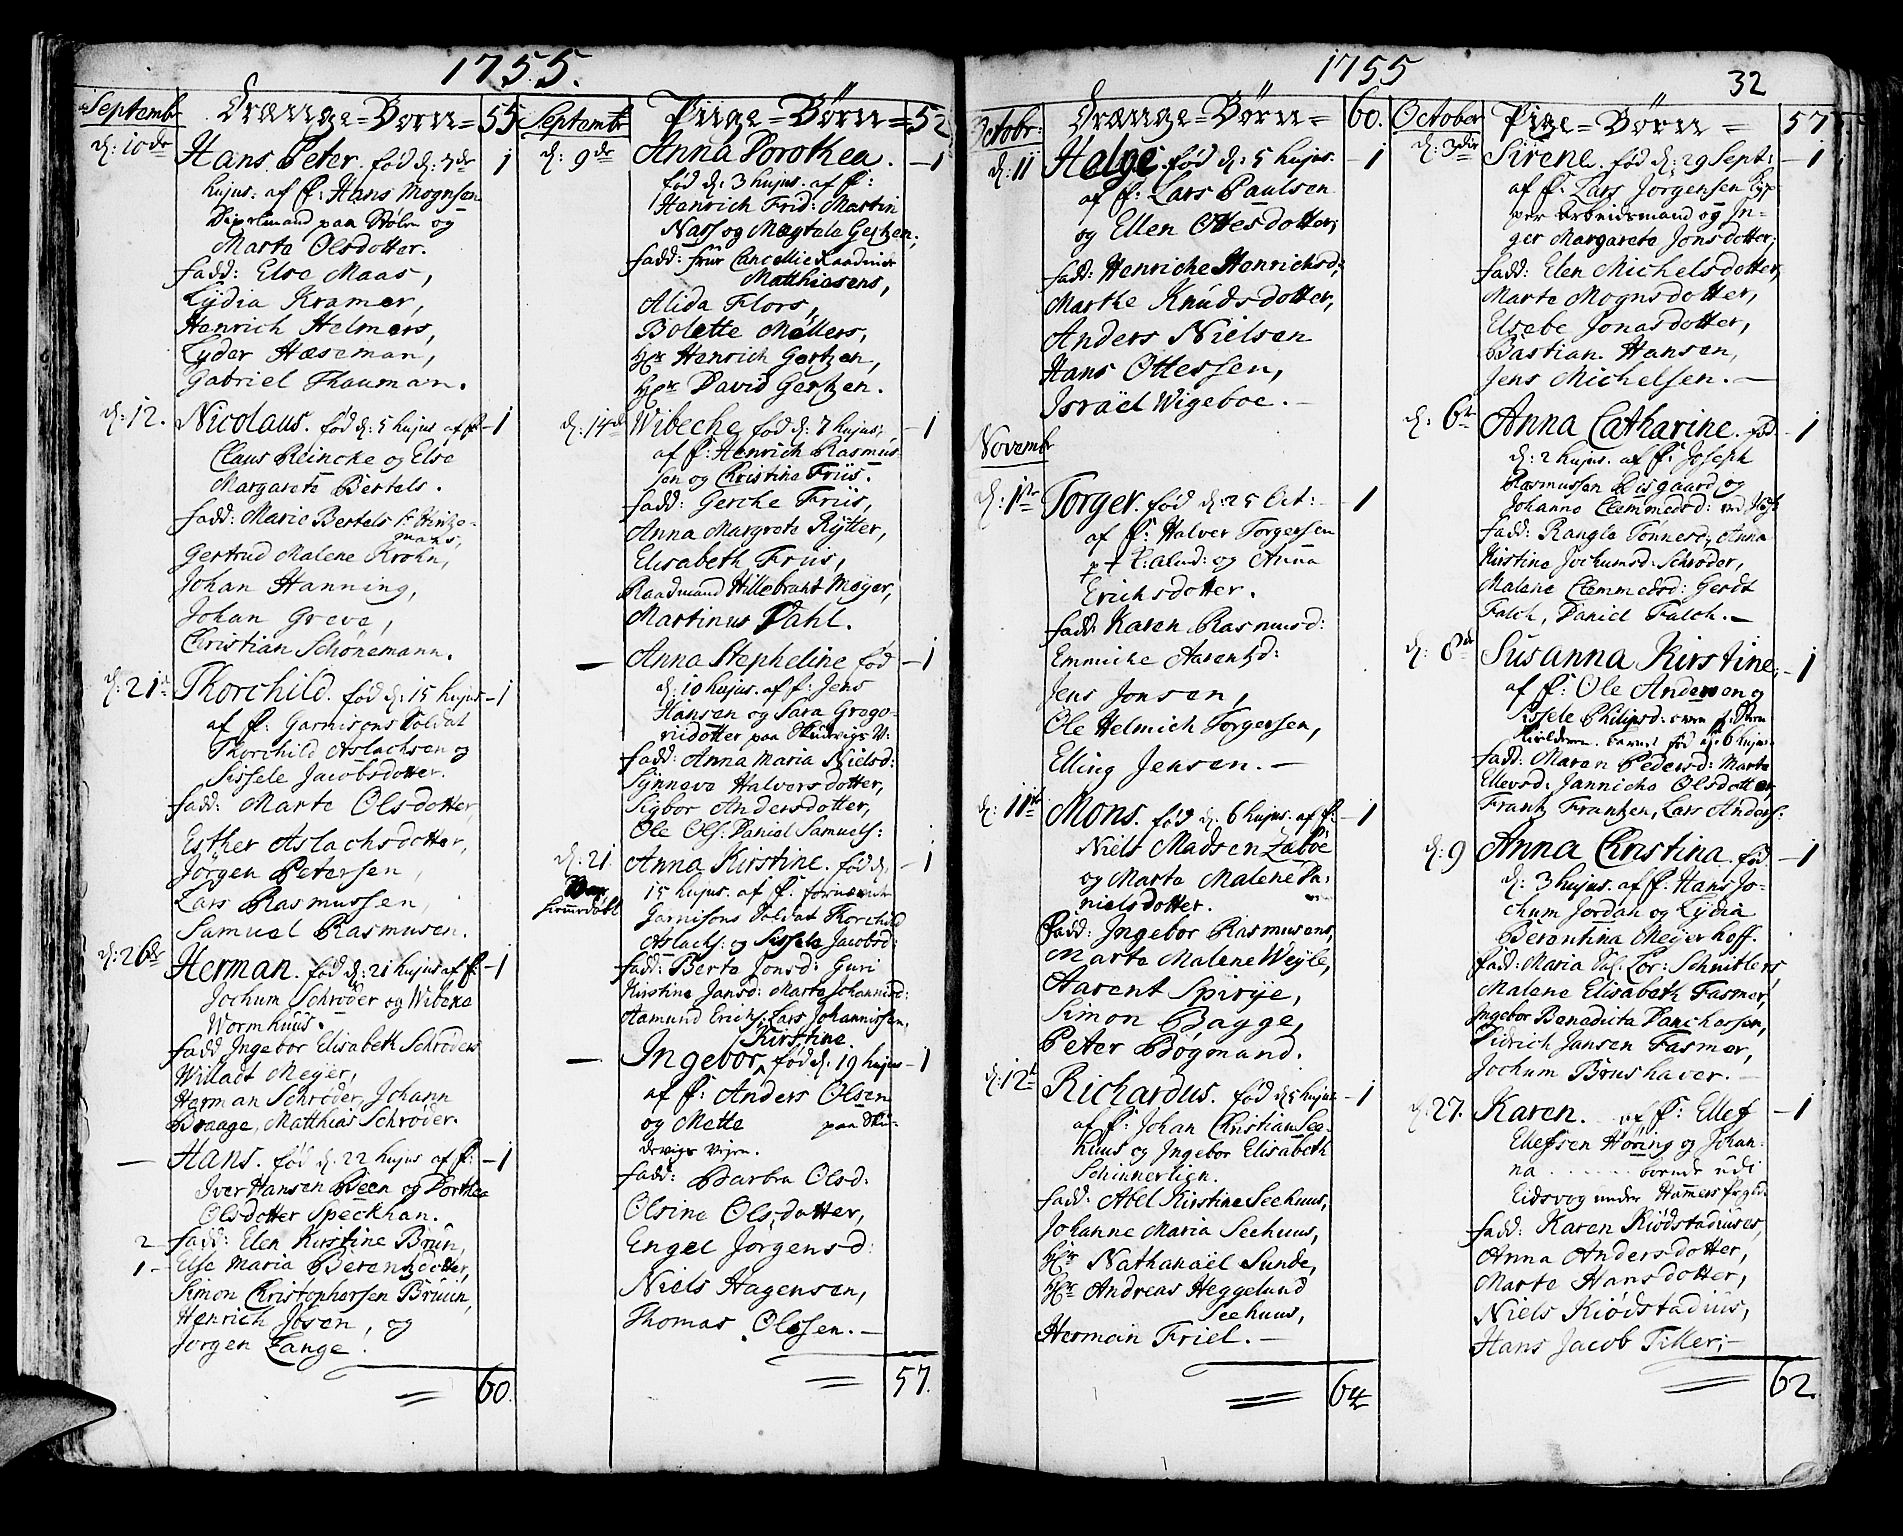 1755.
Septembr
Drænge-Børn 55
d: 10de
Hans Peter. fød d: 7de 1
hujus: af f: Hans Mognsen
paa Stølen og
Marte Olsdotter.
fadd: Else Maas,
Lydia Kramer,
Henrich Helmers,
Lyder Hæseman,
Gabriel Thauman.
d: 12. Nicolaus. fød d: 5 hujus af f: 1
Claus Reincke og Else
Margarete Bertels.
fadd: Marie Bertels
Gertrud Malene Krohn,
Johan Hanning,
Johan Greve,
Christian Schönemann.
d: 21 Thorchild. fød d: 15 hujus 1
af f: Garnisons Soldat
Thorchild Aslachsen og
Sissele Jacobsdotter.
fadd: Marte Olsdotter,
Esther Aslachsdotter,
Jörgen Petersen,
Lars Rasmussen,
Samuel Rasmusen.
d: 26de Herman. fød d: 21 hujus af f: 1
Jochum Schrøder og Wibeke
Wormhuus.
fadd Ingebor Elisabeth Schrøders
Willadt Meyer,
Herman Schrøder, Johann
Braage, Matthias Schrøder.
— Hans. fød d: 22 hujus af f: 1
Iver Hansen Been og Dorthea
Olsdotter Speckhan.
2 fadd: Elen Kirstine Brün,
1 - Else Maria Berentzdotter,
Simon Christophersen Brüün,
Henrich Jbsen, og
Jørgen Lange.
60.
Septembr
Piige-Børn 52
d: 9de Anna Dorothea. 1
fød d: 3 hujus. af f:
Henrich Frid: Martin
Nass og Magtala Gertzen;
fadd: frue Cancellie Raadinde
Matthiesens,
Alida Flors,
Bolette Møllers,
Hr Henrich Gertzen,
Hr David Gertzen.
d: 14de Wibeche, fød d: 7 hujus; 1
af f: Henrich Rasmus
sen og Christine Friis.
fadd: Gerche Friis,
Anna Margrete Rytter,
Elisabeth Friis,
Raadmand Hillebrant Meyer,
Martinus Dahl.
— Anna Stepheline fød 1
d: 10 hujus. af f: Jens
Hansen og Sara Grego-
riidotter paa Skudevigs V:
fadd: Anna Maria Nielsd:
Synneve Halversdotter,
Sigbor Andersdotter,
Ole Ols: Daniel Samuels:
d: 21. Anna Kirstine. fød d: 1
15 hujus. af f: fornævnte
Garnisons Soldat Thorchild
Aslachs: og Sissele Jacobsd:
fadd: Berte Jonsd: Guri
Kirstine Jansd: Marte Johannisd:
Aamund Erichs: Lars Johannissen,
Kirstine.
— Ingebor, fød d: 19 hujus 1
af f: Anders Olsen
og Mette paa Sku-
devigs Vejen.
fadd: Barbra Olsd:
Olsine Olsdotter,
Engel Jørgensd:
Niels Hagensen,
Thomas Olssen.
57.
1755
32
Octobr:
Drænge-Børn 60.
d: 11 Helge fød d: 5 hujus. 1
af f: Lars Paulsen
og Ellen Ottesdotter;
fadd: Henriche Henrichsd:
Marthe Knudsdotter,
Anders Nielsen
Hans Ottessen,
Israël Wigeboe.
Novembr
d: 1te Torger. fød d: 25 Oct: 1
af f: Halver Torgersen
og Anna
Erichsdotter.
fadd: Karen Rasmusd:
Emmiche Aarentzd:
Jens Jonsen,
Ole Helmich Torgersen,
Elling Jensen.
d: 11te Mons. fød d: 6 hujus. af f: 1
Niels Madsen Zaböe
og Marte Malene Da:
nielsdotter.
Fadd: Ingebor Rasmusens,
Marte Malene Weyle,
Aarent Spirije,
Simon Bagge,
Peter Bøgmand.
d: 12t Richardus. fød d: 5 hujus 1
af f: Johan Christian See-
huus og Ingebor Elisabeth
Schinnerlien.
fadd: Abel Kirstine Seehuus,
Johanne Maria Seehuus,
Hr Nathanaël Sunde,
Hr Andreas Heggelund
Seehuus,
Herman Friel.
64
October
Pige-Børn 57
d: 3die Sirene. fød d: 29 Sept: 1
af f: Lars Jørgensen Kyp
per arbeidsmand og In-
ger Margarete Jonsdotter;
fadd: Elen Michelsdotter,
Marte Mognsdotter,
Elsebe Jonasdotter,
Bastian Hansen,
Jens Michelsen.
d: 6te Anna Catharine. fød 1
d: 2 hujus. af f: Joseph
Rasmussen Risgaard og
Johanne Clemmedsd:
fadd: Rangle Tønnesd: Anna
Kirstine Jochumsd: Schrøder,
Malene Clemmedsd: Gerdt
Falch, Daniel Falch.
d: 8de Susanna Kirstine, 1
af f: Ole Andersen og
Sissele Philipsd:
barnet fød d: 6 hujus.
fadd: Maren Pedersd: Marte
Ellevsd: Jannicke Olsdotter
Frantz Frantzen, Lars Anders:
d: 9 Anna Christina. fød 1
d: 3 hujus. af f: Hans Jo-
chum Jordan og Lydia
Berentina Meyerhoff.
fadd: Maria Sal: Cor: Schnitlers,
Malene Elisabeth Fasmer,
Ingebor Benedicta Danchersen,
Didrich Jansen Fasmer,
Jochum Brushaver.
d: 27. Karen. af f: Ellef 1
Ellefsen Høring og Johan-
na boende udi
Eidsvog under Hammers
fadd: Karen Kiødstadiuses,
Anna Andersdotter,
Marte Hansdotter,
Niels Kiødstadius,
Hans Jacob Tiller;
62.